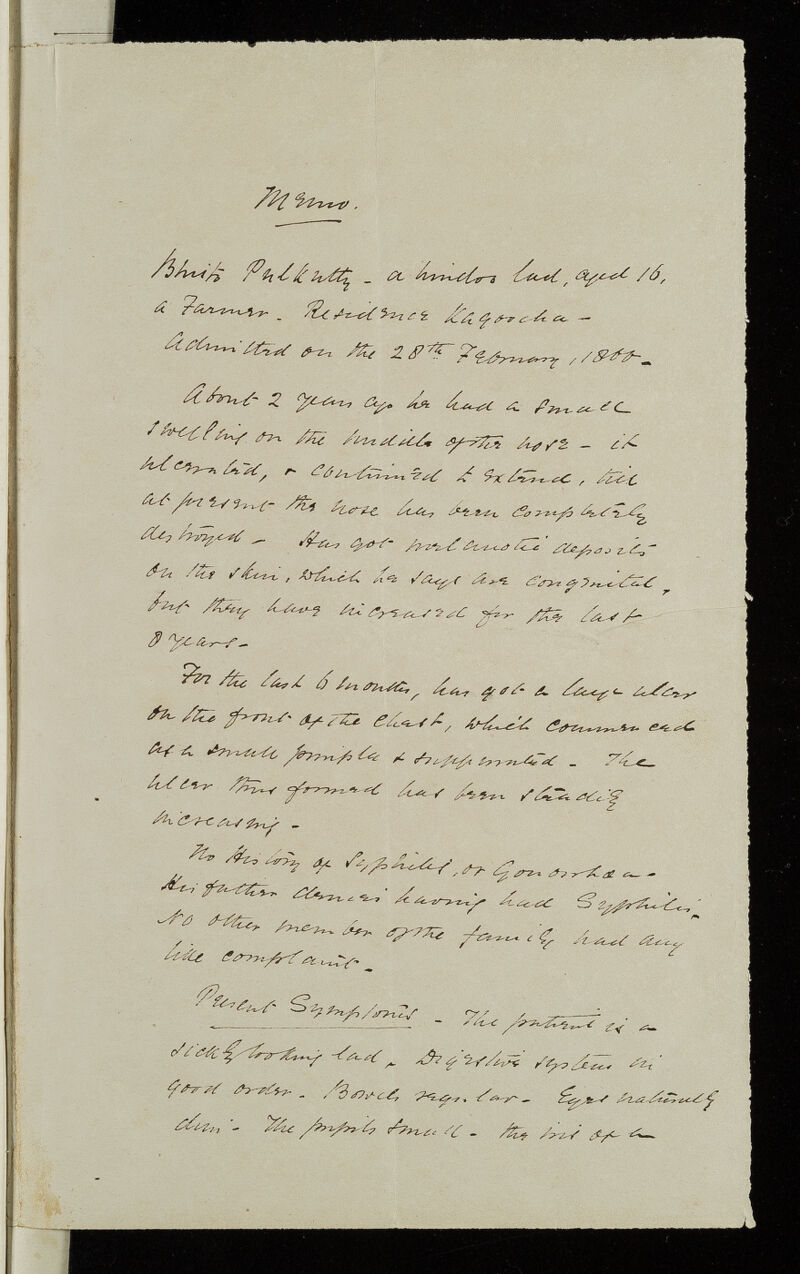 Memo.
a hindoo lad, aged 16,
a Farmer - Residence Kagoocha -
Admitted on the 28th February, 18
About 2 years ago he had a small
swelling on the middle of the nose - it
ulcerated, & continued to extend, till
at present the nose has been completely
destroyed - Has got melanotic deposits
on the skin, which he says are congenital,
but they have increased for the last
8 years -
For the last 6 months, has got a large ulcer
on the front of the chest, which commenced
as a small pimple & suppurated - The
ulcer thus formed has been steadily
increasing -
No History of Syphilis, or Gonorrhœa -
His father denies having had Syphilis -
No other member of the family had any
like complaint -
Present Symptoms - The patient is a
sickly looking lad - Digestive system in
good order - Bowels regular - Eyes naturally
dim - The pupils small - the iris of a